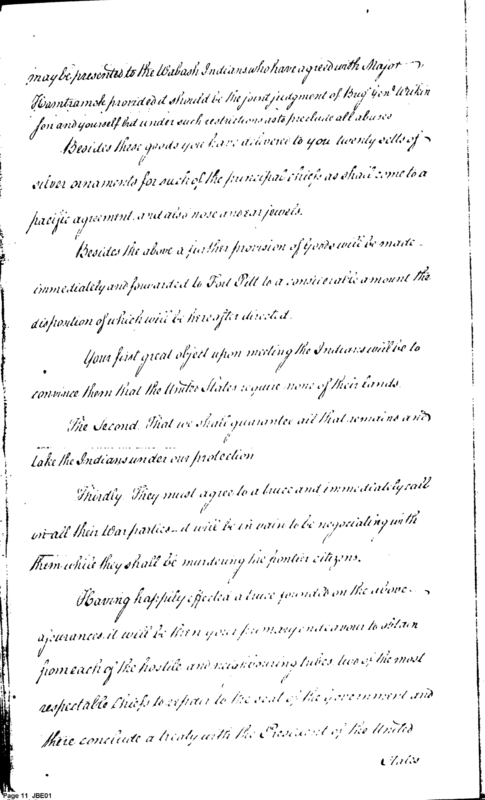 may be presented to the Wabash Indians who have agreed with Major
Hamtramsk provided it should be the joint judgment of Brig Genl Wilkin
son and yourself but under such restrictions as to preclude all abuses
Besides these goods you have delivered to you twenty setts of
silver ornaments for such of the principal chiefs as shall come to a
pacific agreement, and also nose and ear jewels.
Besides the above a further provision of Goods will be made
immediately and forwarded to Fort Pitt to a considerable amount the
disposition of which will be hereafter directed.
Your first great object upon meeting the Indians will be to
convince them that the United States require none of their lands.
The Second. That we shall guarantee all that remains and
take the Indians under our protection
Thirdly They must agree to a truce and immediately call
in all their War parties - it will be in vain to be negociating with
them while they shall be murdering the frontier citizens.
Having happily effected a truce founded on the above
assurances, it will be then your primary endeavour to obtain
from each of the hostile and neighbouring tribes two of the most
respectable Chiefs to repair to the seat of the Government and
there conclude a treaty with the President of the United
States
Page 11 JBE01